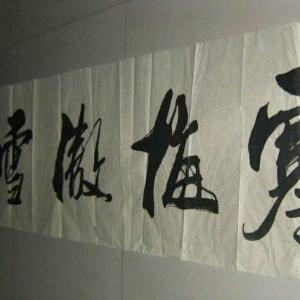 寒梅傲雪